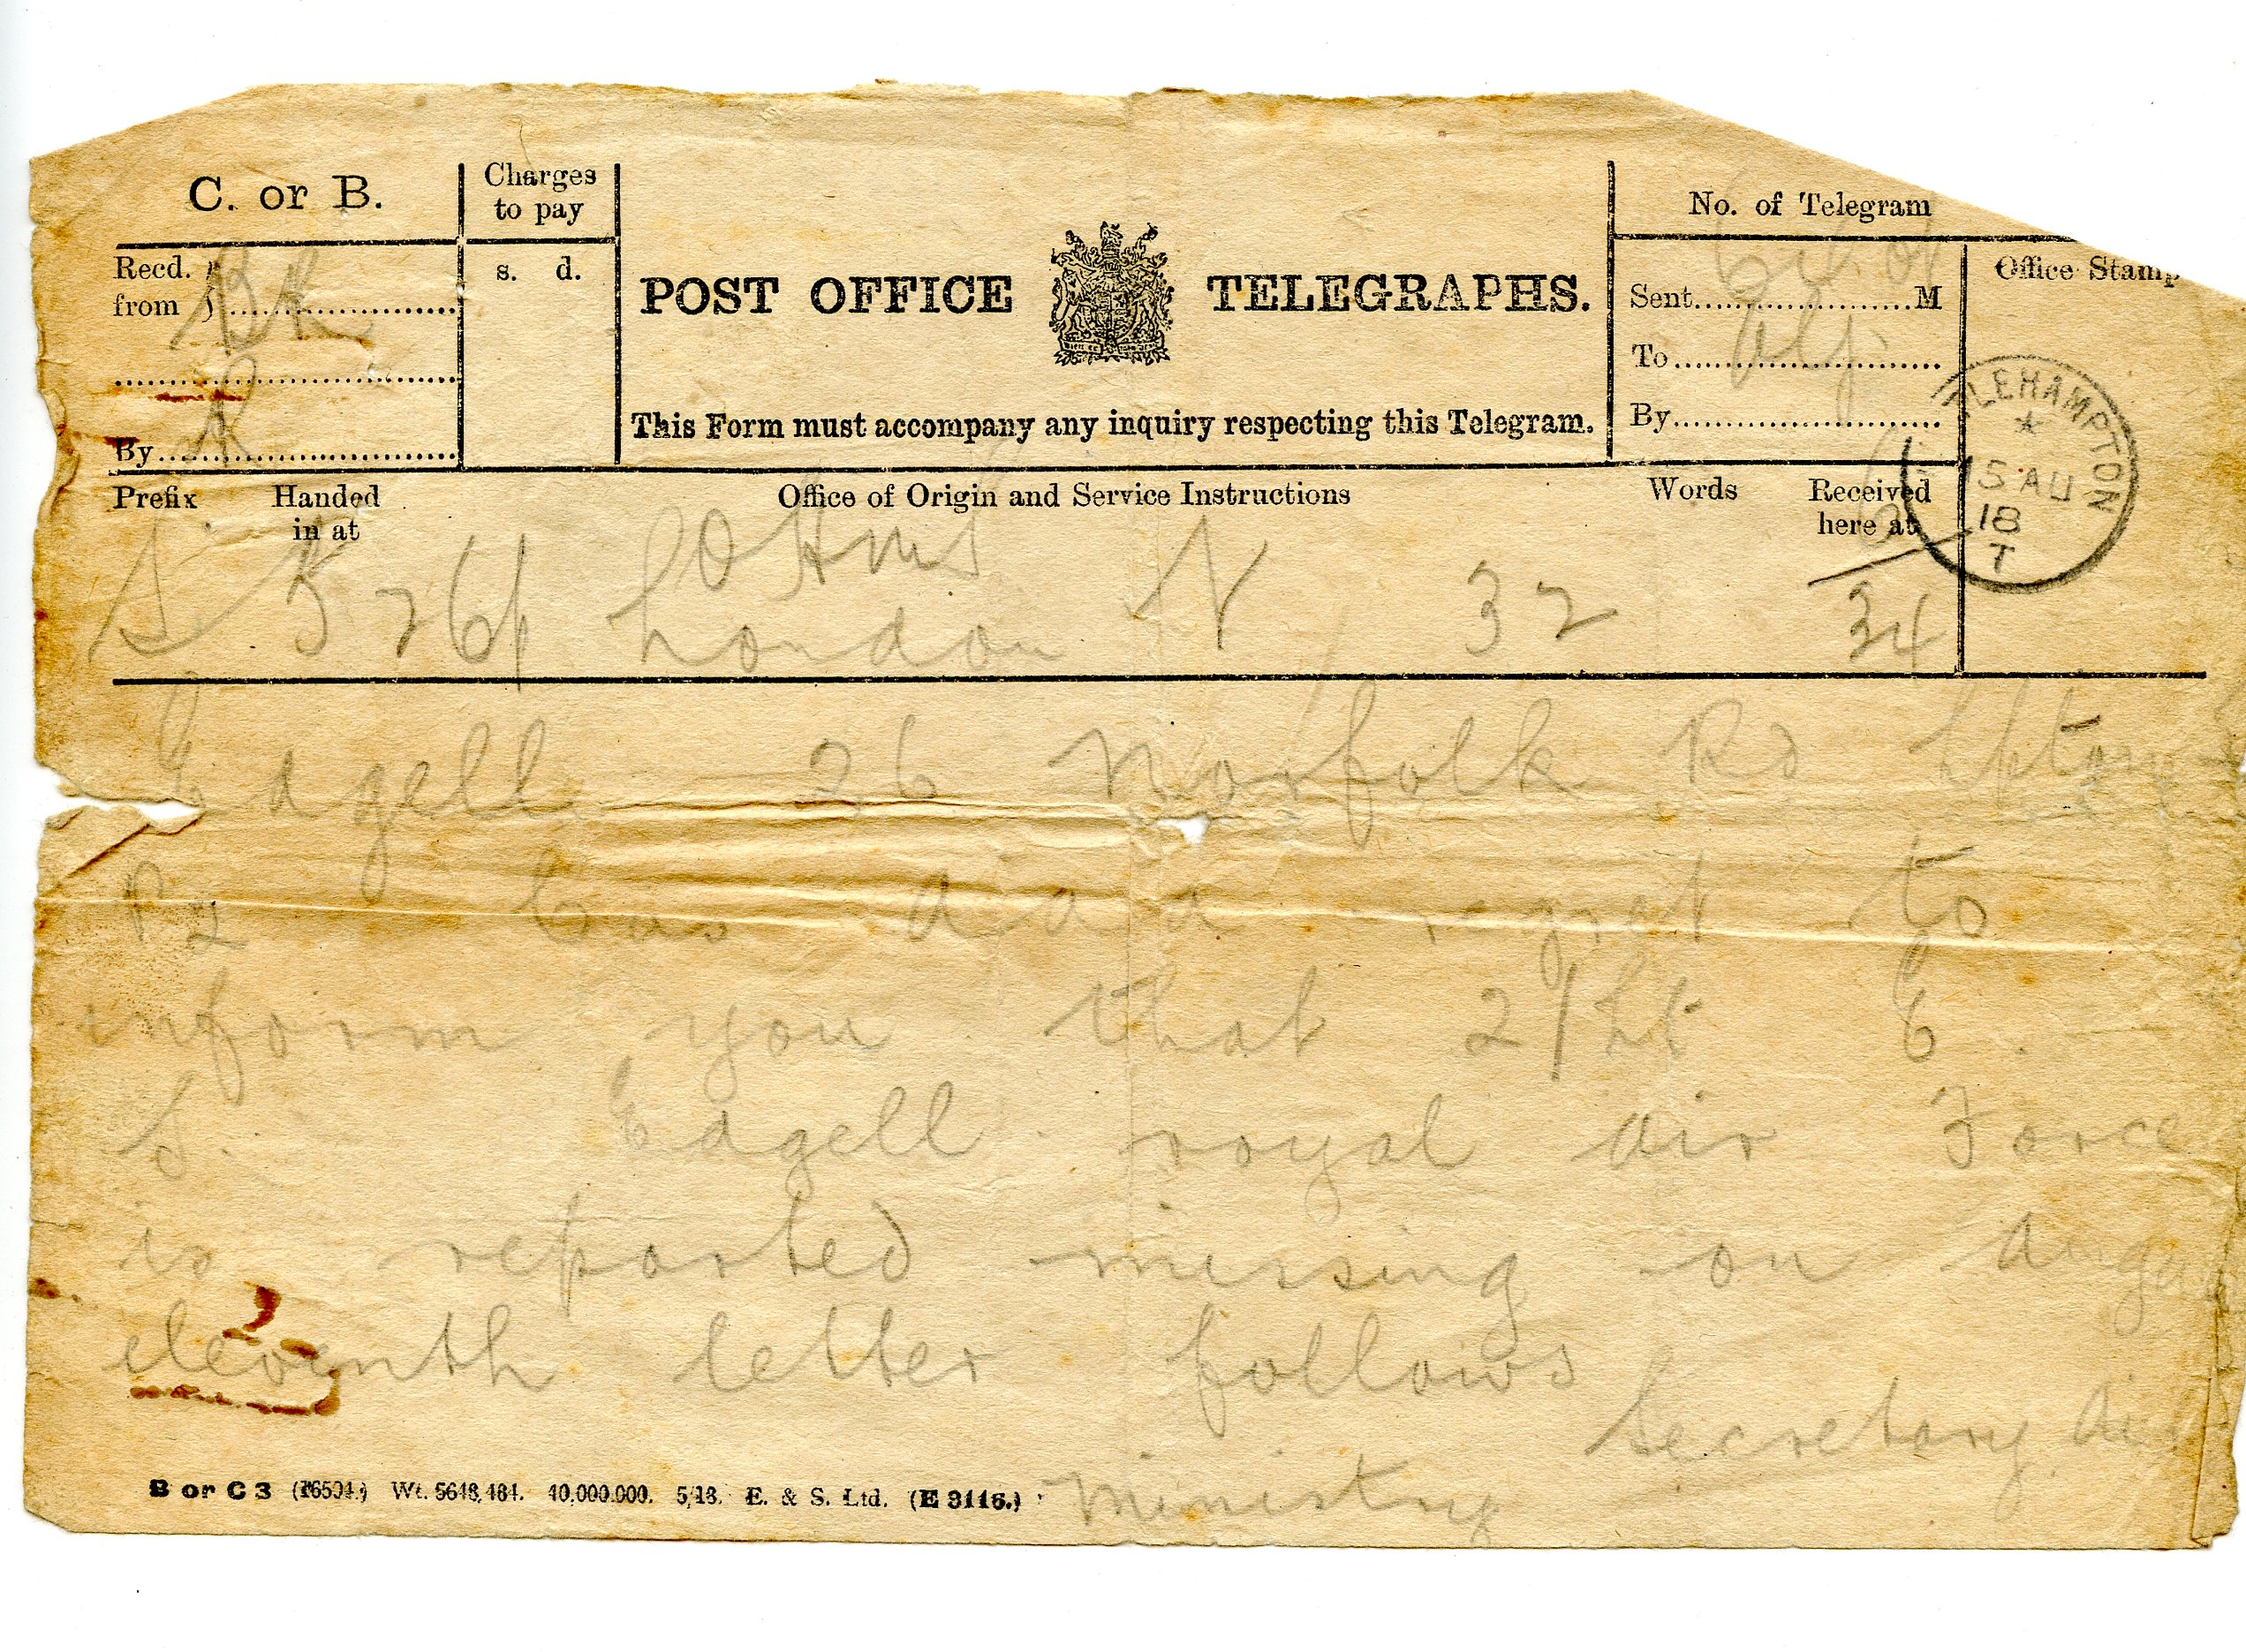 C. or B.
Charges
to pay
No. of Telegram
Recd.
from
s. d.
POST OFFICE TELEGRAPHS.
Sent M
Office Stamp
To
This Form must accompany any inquiry respecting this Telegram.
By
By
LEHAMPTON
15 AU
18
T
Prefix Handed
in at
Office of Origin and Service Instructions
Words Received
here at
OHMS
London N 32 34
Edgell 26 Norfolk Rd
regret to
inform you that 2/Lt E.
S. Edgell royal air Force
is reported missing on
eleventh letter follows
Secretary Air
Ministry
B or C 3 Wt. 40,000,000. 5/18. E. & S. Ltd. (E 3116.)